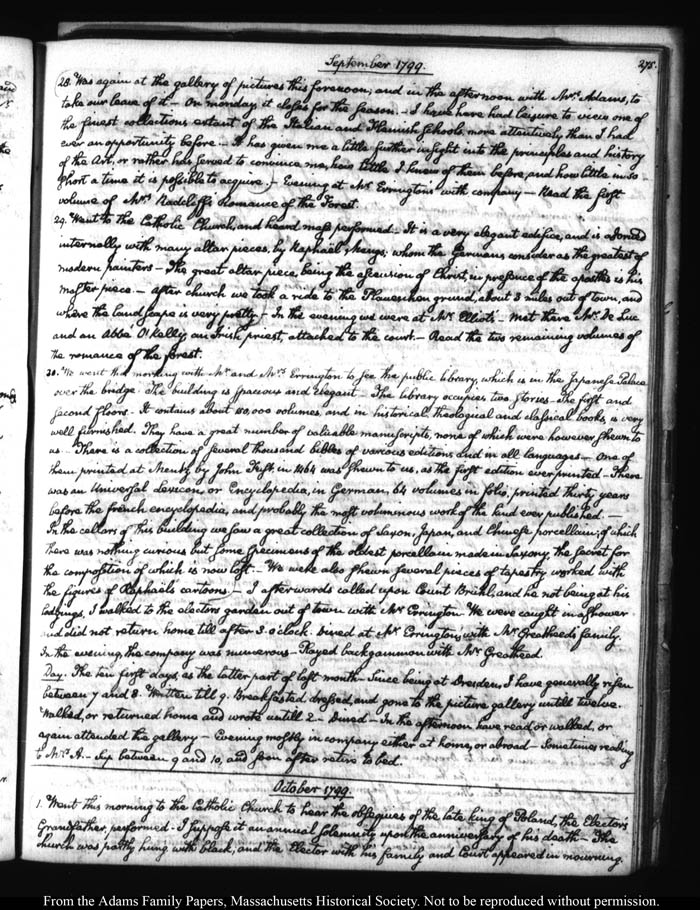 September 1799.
275.
28. Was again at the gallery of pictures this forenoon; and in the afternoon with Mrs. Adams, to
take our leave of it — On monday it closes for the season. — I have here had leisure to view one of
the finest collections extant of the Italian and Flemish Schools, more attentively than I had
ever an opportunity before — It has given me a little further insight into the principles and history
of the Art, or rather has served to convince me, how little I knew of them before, and how little in so
short a time it is possible to acquire. — Evening at Mr. Errington's with company — Read the first
volume of Mrs. Radcliffe's Romance of the Forest.
29. Went to the Catholic Church, and heard mass performed — It is a very elegant edifice, and is adorned
internally with many altar pieces, by Raphael Mengs; whom the Germans consider as the greatest of
modern painters — The great altar piece, being the ascension of Christ, in presence of the apostles is his
master piece. — After church we took a ride to the Plaueschen grund, about 3 miles out of town, and
where the landscape is very pretty. — In the evening we were at Mr. Elliot's — Met there Mr. De Luc
and an Abbé O'Kelly, an Irish priest, attached to the court. — Read the two remaining volumes of
the romance of the forest.
30. We went this morning with Mr. and Mrs. Errington to see the public library, which is in the Japanese Palace
over the bridge. The building is spacious and elegant — The library occupies two stories — The first and
second floors — It contains about 100,000 volumes, and in historical, theological and classical books, is very
well furnished. They have a great number of valuable manuscripts, none of which were however shewn to
us — There is a collection of several thousand bibles of various editions and in all languages — One of
them printed at Mentz by John Fust, in 1464 was shewn to us, as the first edition ever printed — There
was an Universal Lexicon, or Encyclopedia, in German, 64 volumes in folio, printed thirty years
before the french encyclopedia, and probably the most voluminous work of the kind ever published. —
In the cellars of this building we saw a great collection of Saxon, Japan, and Chinese porcellain; of which
there was nothing curious but some specimens of the oldest porcellain made in Saxony, the secret for
the composition of which is now lost. — We were also shewn several pieces of tapestry worked with
the figures of Raphael's cartoons — I afterwards called upon Count Brühl, and he not being at his
lodgings, I walked to the electors garden out of town with Mr. Errington. We were caught in a shower
and did not return home till after 3. o'clock. Dined at Mr. Errington's, with Mr. Greatheed's family.
In the evening, the company was numerous — Played backgammon with Mr. Greatheed.
Day. The ten first days, as the latter part of last month — Since being at Dresden, I have generally risen
between 7 and 8. Written till 9. Breakfasted, dressed, and gone to the picture gallery untill twelve.
Walked, or returned home and wrote untill 2 — Dined — In the afternoon have read or walked, or
again attended the gallery — Evening mostly in company either at home, or abroad — Sometimes reading
to Mrs. A. — Sup between 9 and 10, and soon after retire to bed.
October 1799.
1. Went this morning to the Catholic Church to hear the obsequies of the late king of Poland, the Elector's
Grandfather, performed — I suppose it an annual solemnity upon the anniversary of his death — The
church was partly hung with black, and the Elector with his family and Court appeared in mourning.
From the Adams Family Papers, Massachusetts Historical Society. Not to be reproduced without permission.